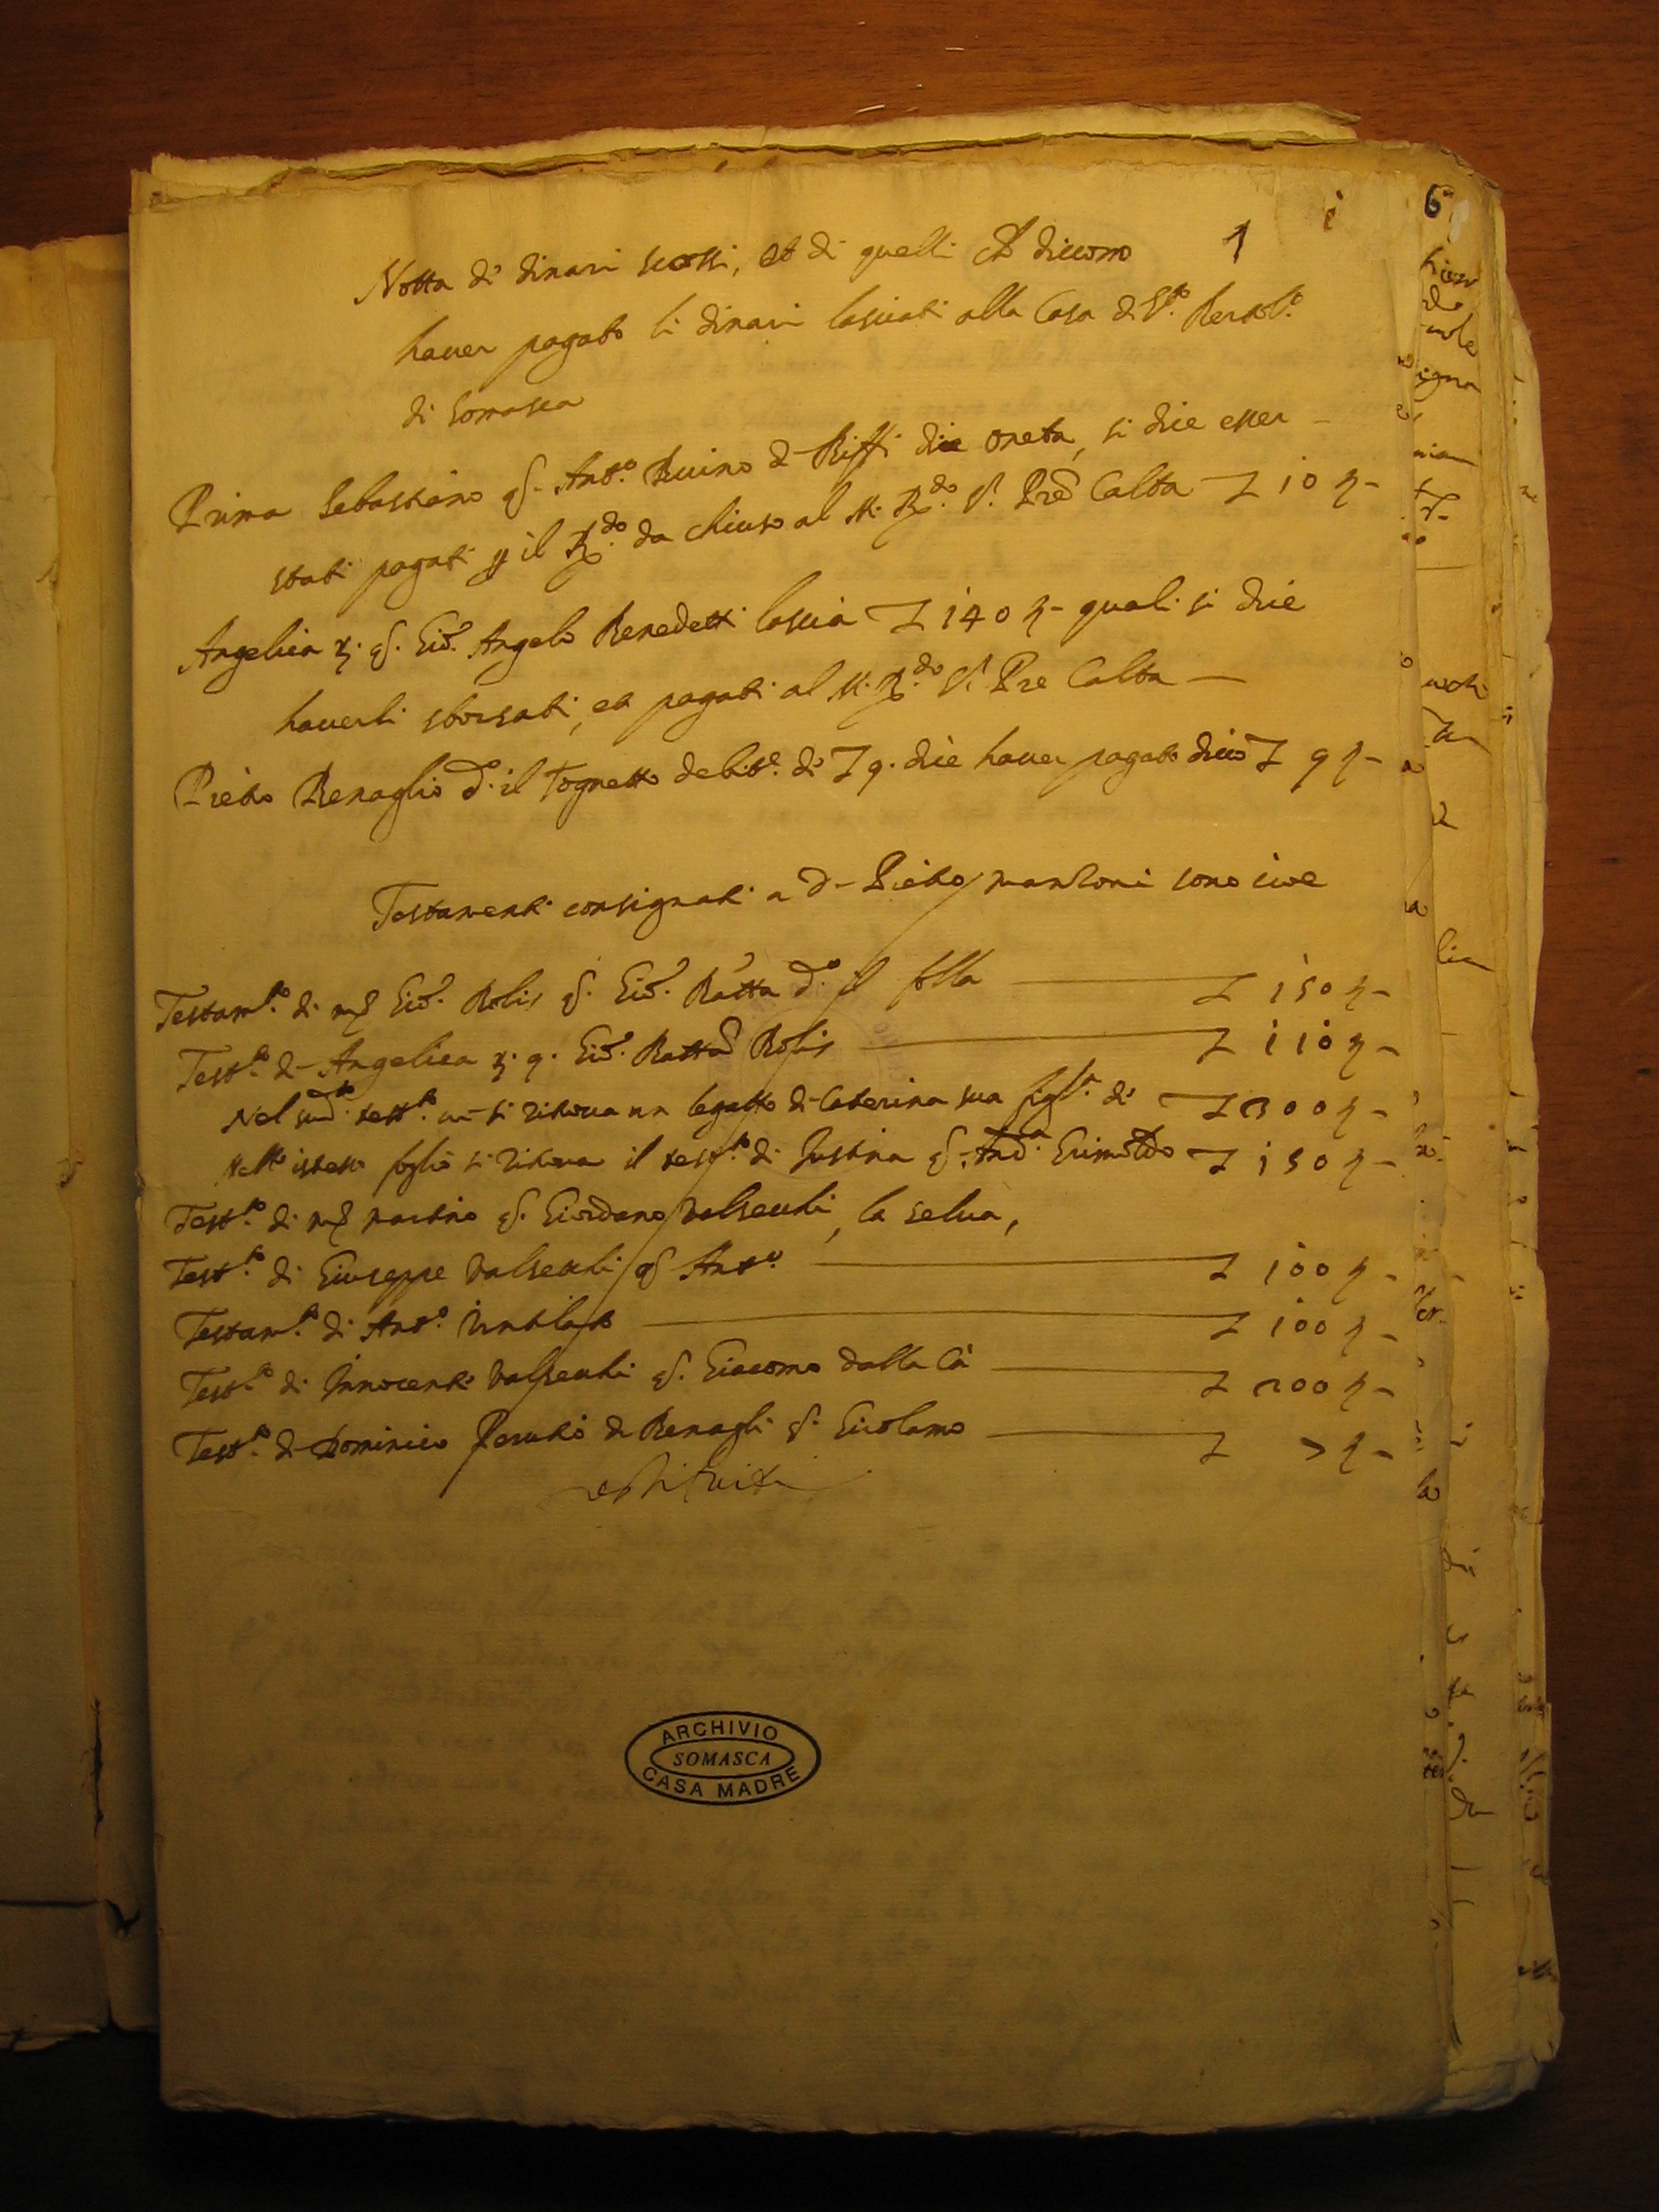 1 i 6
Notta di dinari scossi, et di quelli ch dicono
hauer pagato li dinari lasciati alla Casa di S.to Bertol.o
di Somasca
Prima Sebastiano q. Ant.o Ruino d Riffi die oneta, si die esser
stati pagati p il R.do da chiuso al M. R.do S.r Pre Calta L 10 ß -
Angelica r. q. Gio. Angelo Benedetti lascia L 140 ß - quali si die
hauerli sborsati, et pagati al M. R.do S.r Pre Calta
Pietro Benaglio d.o il Tognetto debit.e di L 9. die hauer pagato dico L 9 ß -
Testamenti consignati a d- Pietro manzoni sono cioe
Testam.to di Gio. Rolis q. Gio. Ratta d.o il folla L 150 ß -
Test.to d- Angelica r. q. Gio. Ratta d Rolis L 110 ß -
Nel sud.to test.to si ritroua un legatto di Caterina sua figl.a di L 300 ß -
Nello istesso foglio si ritroua il test.to di Justina q. And.a Grimoldo L 150 ß -
Test.to di martino q. Giordano Valsecchi, la selua,
Test.to di Giuseppe Valsecchi q Ant.o L 100 ß -
Testam.to di Ant.o L 100 ß -
Test.to di Innocente Valsecchi q. Giacomo dalla Cà L 200 ß -
Test.to d- Dominico d Benagli q. Girolamo L 7 ß -
restituiti
ARCHIVIO
SOMASCA
CASA MADRE